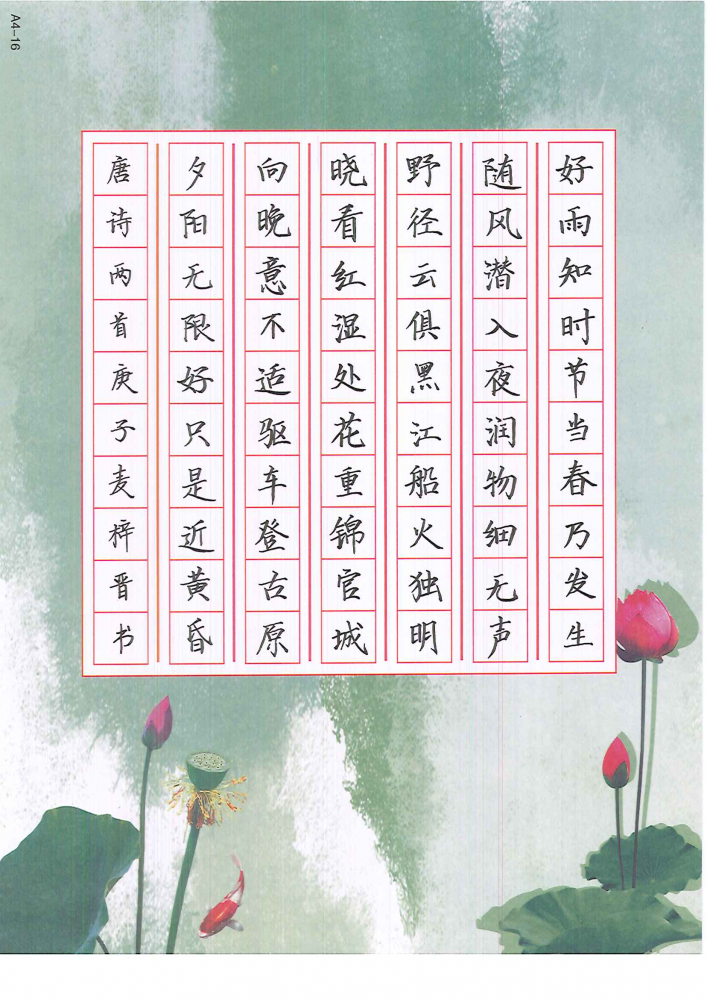 A4-16
好雨知时节当春乃发生
随风潜入夜润物细无声
野径云俱黑江船火独明
晓看红湿处花重锦官城
向晚意不适驱车登古原
夕阳无限好只是近黄昏
唐诗两首庚子麦梓晋书